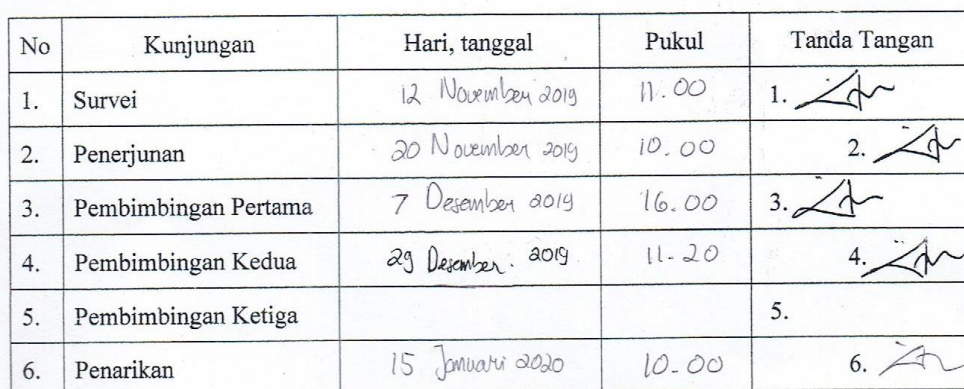 No Kunjungan Hari, tanggal Pukul Tanda Tangan
1. Survei 12 November 2019 11.00 1.
2. Penerjunan 20 November 2019 10.00 2.
3. Pembimbingan Pertama 7 Desember 2019 16.00 3.
4. Pembimbingan Kedua 29 Desember. 2019 11-20 4.
5. Pembimbingan Ketiga 5.
6. Penarikan 15 Januari 2020 10.00 6.